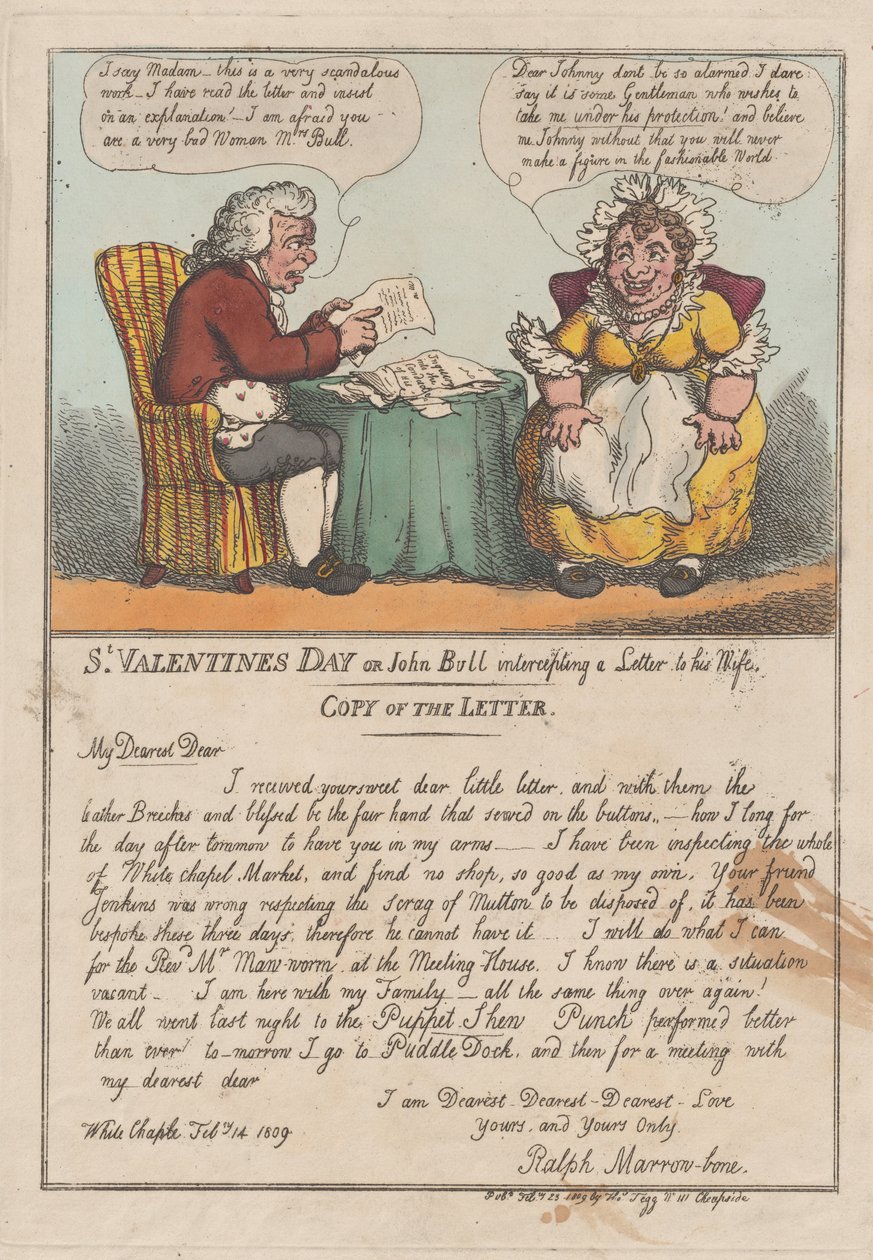 I say Madam - this is a very scandalous
work - I have read the letter and insist
on an explanation! - I am afraid you
are a very bad Woman Mrs Bull.
Dear Johnny dont be so alarmed I dare
say it is some Gentleman who wishes to
take me under his protection! and believe
me Johnny without that you will never
make a figure in the fashionable World
St. VALENTINES DAY OR John Bull intercepting a Letter to his Wife.
COPY OF THE LETTER.
My Dearest Dear
I received your sweet dear little letter, and with them the
leather Breeches and blessed be the fair hand that sewed on the buttons,, - how I long for
the day after tommorow to have you in my arms - I have been inspecting the whole
of White chapel Market, and find no shop, so good as my own, Your friend
Jenkins was wrong respecting the scrag of Mutton to be disposed of, it has been
bespoke these three days, therefore he cannot have it I will do what I can
for the Revd Mr Maw-worm, at the Meeting House. I know there is a situation
vacant - I am here with my Family - all the same thing over again!
We all went last night to the Puppet Shew Punch performed better
than ever! to-morrow I go to Puddle Dock, and then for a meeting with
my dearest dear
I am Dearest - Dearest - Dearest - Love
Yours, and Yours Only.
White Chaple Feby 14 1809
Ralph Marrow-bone.
Pubd Feby 23 1809 by Thos Tegg No 111 Cheapside